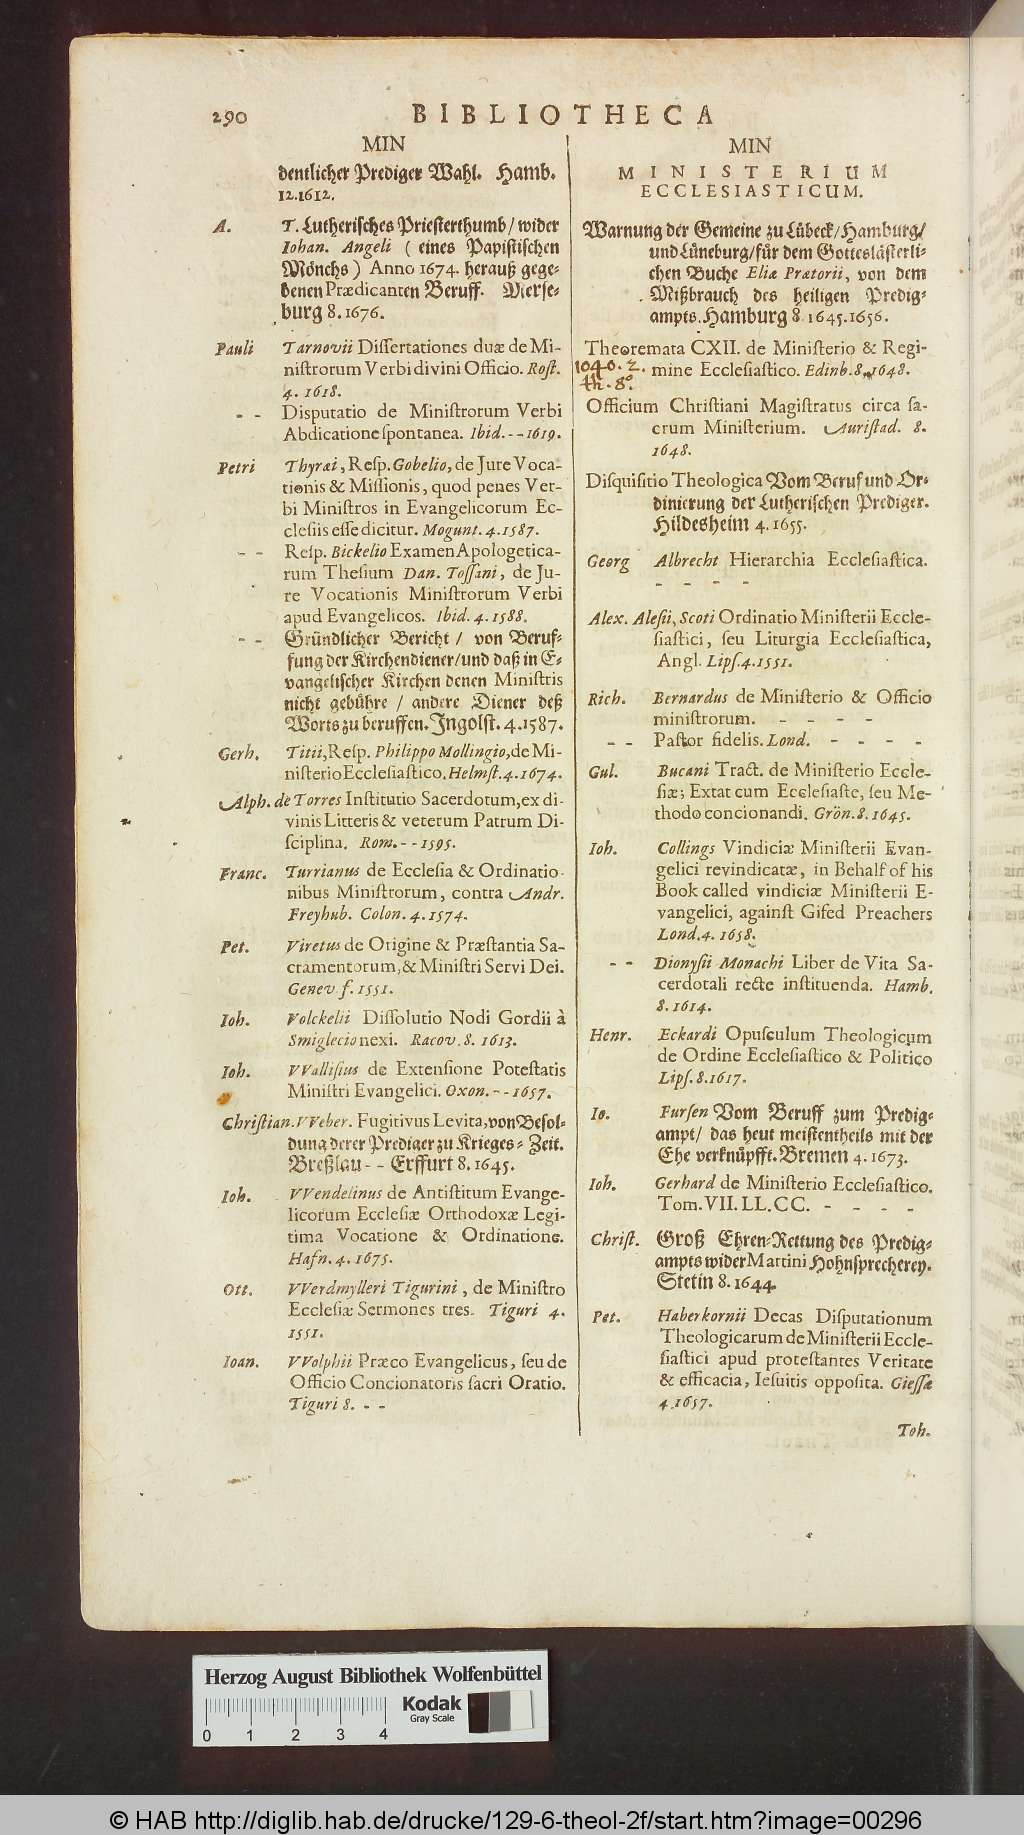 290
BIBLIOTHECA
MIN
dentlicher Prediger Wahl. Hamb.
12.1612.
A. T. Lutherisches Priesterthumb/ wider
Iohan. Angeli ( eines Papistischen
Mönchs ) Anno 1674. herauß gege-
benen Prædicanten Beruff. Merse-
burg 8. 1676.
Pauli Tarnovii Dissertationes duæ de Mi-
nistrorum Verbi divini Officio. Rost.
4. 1618.
- - Disputatio de Ministrorum Verbi
Abdicatione spontanea. Ibid. - - 1619.
Petri Thyræi, Resp. Gobelio, de Jure Voca-
tionis & Missionis, quod penes Ver-
bi Ministros in Evangelicorum Ec-
clesiis esse dicitur. Mogunt. 4. 1587.
- - Resp. Bickelio Examen Apologetica-
rum Thesium Dan. Tossani, de Ju-
re Vocationis Ministrorum Verbi
apud Evangelicos. Ibid. 4. 1588.
- - Gründlicher Bericht / von Beruf-
fung der Kirchendiener/und daß in E-
vangelischer Kirchen denen Ministris
nicht gebühre / andere Diener deß
Worts zu beruffen. Ingolst. 4. 1587.
Gerh. Titii, Resp. Philippo Mollingio, de Mi-
nisterio Ecclesiastico. Helmst. 4. 1674.
Alph. de Torres Institutio Sacerdotum, ex di-
vinis Litteris & veterum Patrum Di-
sciplina. Rom. - - 1595.
Franc. Turrianus de Ecclesia & Ordinatio-
nibus Ministrorum, contra Andr.
Freyhub. Colon. 4. 1574.
Pet. Viretus de Origine & Præstantia Sa-
cramentorum, & Ministri Servi Dei.
Genev f. 1551.
Ioh. Volckelii Dissolutio Nodi Gordii à
Smiglecio nexi. Racov. 8. 1613.
Ioh. VVallisius de Extensione Potestatis
Ministri Evangelici. Oxon. - - 1657.
Christian. VVeber. Fugitivus Levita, von Besol-
dung derer Prediger zu Krieges-Zeit.
Breßlau - - Erffurt 8. 1645.
Ioh. VVendelinus de Antistitum Evange-
licorum Ecclesiæ Orthodoxæ Legi-
tima Vocatione & Ordinatione.
Hafn. 4. 1675.
Ott. VVerdmylleri Tigurini, de Ministro
Ecclesiæ Sermones tres. Tiguri 4.
1551.
Ioan. VVolphii Præco Evangelicus, seu de
Officio Concionatoris sacri Oratio.
Tiguri 8. - -
MIN
MINISTERIUM
ECCLESIASTICUM.
Warnung der Gemeine zu Lübeck/Hamburg/
und Lüneburg/für dem Gotteslästerli-
chen Buche Eliæ Prætorii, von dem
Mißbrauch des heiligen Predig-
ampts. Hamburg 8. 1645. 1656.
Theoremata CXII. de Ministerio & Regi-
mine Ecclesiastico. Edinb. 8. 1648.
1040. 2.
th. 8°.
Officium Christiani Magistratus circa sa-
crum Ministerium. Auristad. 8.
1648.
Disquisitio Theologica Vom Beruf und Or-
dinierung der Lutherischen Prediger.
Hildesheim 4. 1655.
Georg Albrecht Hierarchia Ecclesiastica.
- - - -
Alex. Alesii, Scoti Ordinatio Ministerii Eccle-
siastici, seu Liturgia Ecclesiastica,
Angl. Lips. 4. 1551.
Rich. Bernardus de Ministerio & Officio
ministrorum. - - - -
- - Pastor fidelis. Lond. - - - -
Gul. Bucani Tract. de Ministerio Eccle-
siæ; Extat cum Ecclesiaste, seu Me-
thodo concionandi. Grön. 8. 1645.
Ioh. Collings Vindiciæ Ministerii Evan-
gelici revindicatæ, in Behalf of his
Book called vindiciæ Ministerii E-
vangelici, against Gifed Preachers
Lond. 4. 1658.
- - Dionysii Monachi Liber de Vita Sa-
cerdotali recte instituenda. Hamb.
8. 1614.
Henr. Eckardi Opusculum Theologicum
de Ordine Ecclesiastico & Politico
Lips. 8. 1617.
Io. Fursen Vom Beruff zum Predig-
ampt/ das heut meistentheils mit der
Ehe verknüpfft. Bremen 4. 1673.
Ioh. Gerhard de Ministerio Ecclesiastico.
Tom. VII. LL. CC. - - - -
Christ. Groß Ehren-Rettung des Predig-
ampts wider Martini Hohnsprecherey.
Stetin 8. 1644.
Pet. Haberkornii Decas Disputationum
Theologicarum de Ministerii Eccle-
siastici apud protestantes Veritate
& efficacia, Iesuitis opposita. Giessæ
4. 1657.
Toh.
Herzog August Bibliothek Wolfenbüttel
Kodak
Gray Scale
0 1 2 3 4
© HAB http://diglib.hab.de/drucke/129-6-theol-2f/start.htm?image=00296